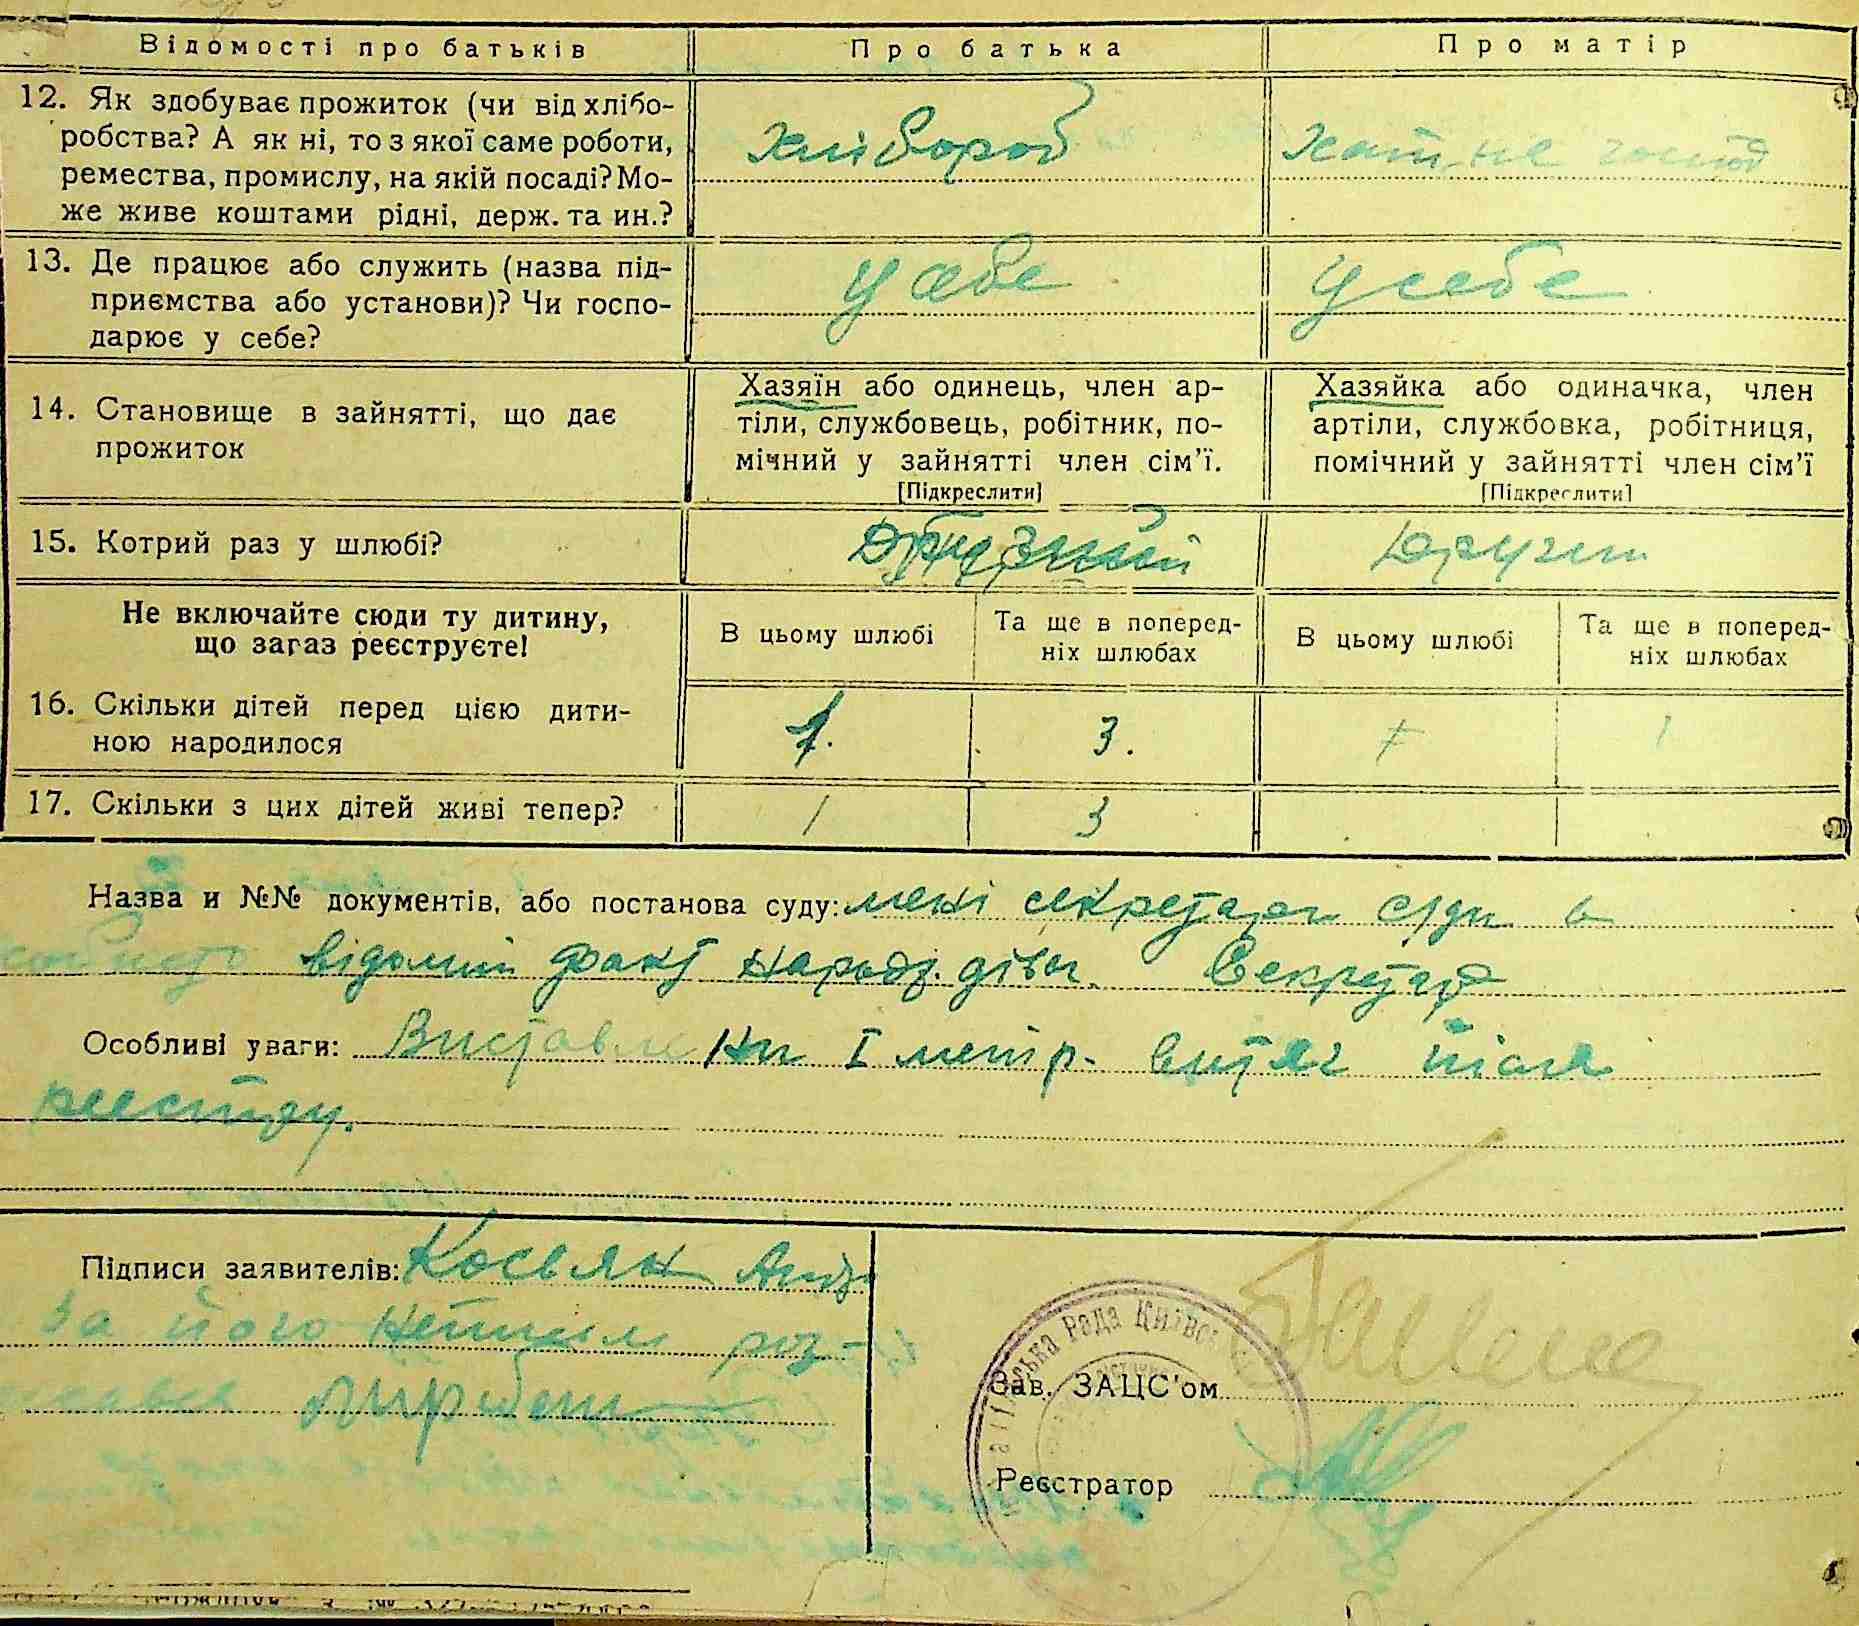 Відомості про батьків
Про батька
Про матір
12. Як здобуває прожиток (чи від хлібо-
робства? А як ні, то з якої саме роботи,
ремества, промислу, на якій посаді? Мо-
же живе коштами рідні, держ. та ин.?
хлібороб
хатн. не господ
13. Де працює або служить (назва під-
приємства або установи)? Чи госпо-
дарює у себе?
у себе
у себе
14. Становище в зайнятті, що дає
прожиток
Хазяїн або одинець, член ар-
тіли, службовець, робітник, по-
мічний у зайнятті член сім'ї.
[Підкреслити]
Хазяйка або одиначка, член
артіли, службовка, робітниця,
помічний у зайнятті член сім'ї
[Підкреслити]
15. Котрий раз у шлюбі?
Не включайте сюди ту дитину,
що зараз реєструєте!
В цьому шлюбі
Та ще в поперед-
ніх шлюбах
В цьому шлюбі
Та ще в поперед-
ніх шлюбах
16. Скільки дітей перед цією дити-
ною народилося
1.
3.
1
17. Скільки з цих дітей живі тепер?
1
3
Назва и №№ документів, або постанова суду: мені секретарю
відомий факт народ. Секретар
Особливі уваги: Виставлени І метр. витяг після
реєстру.
Підписи заявителів: Косьян Анд
За його неписьм роз-
Рада Київсь
Зав. ЗАЦС'ом
Реєстратор